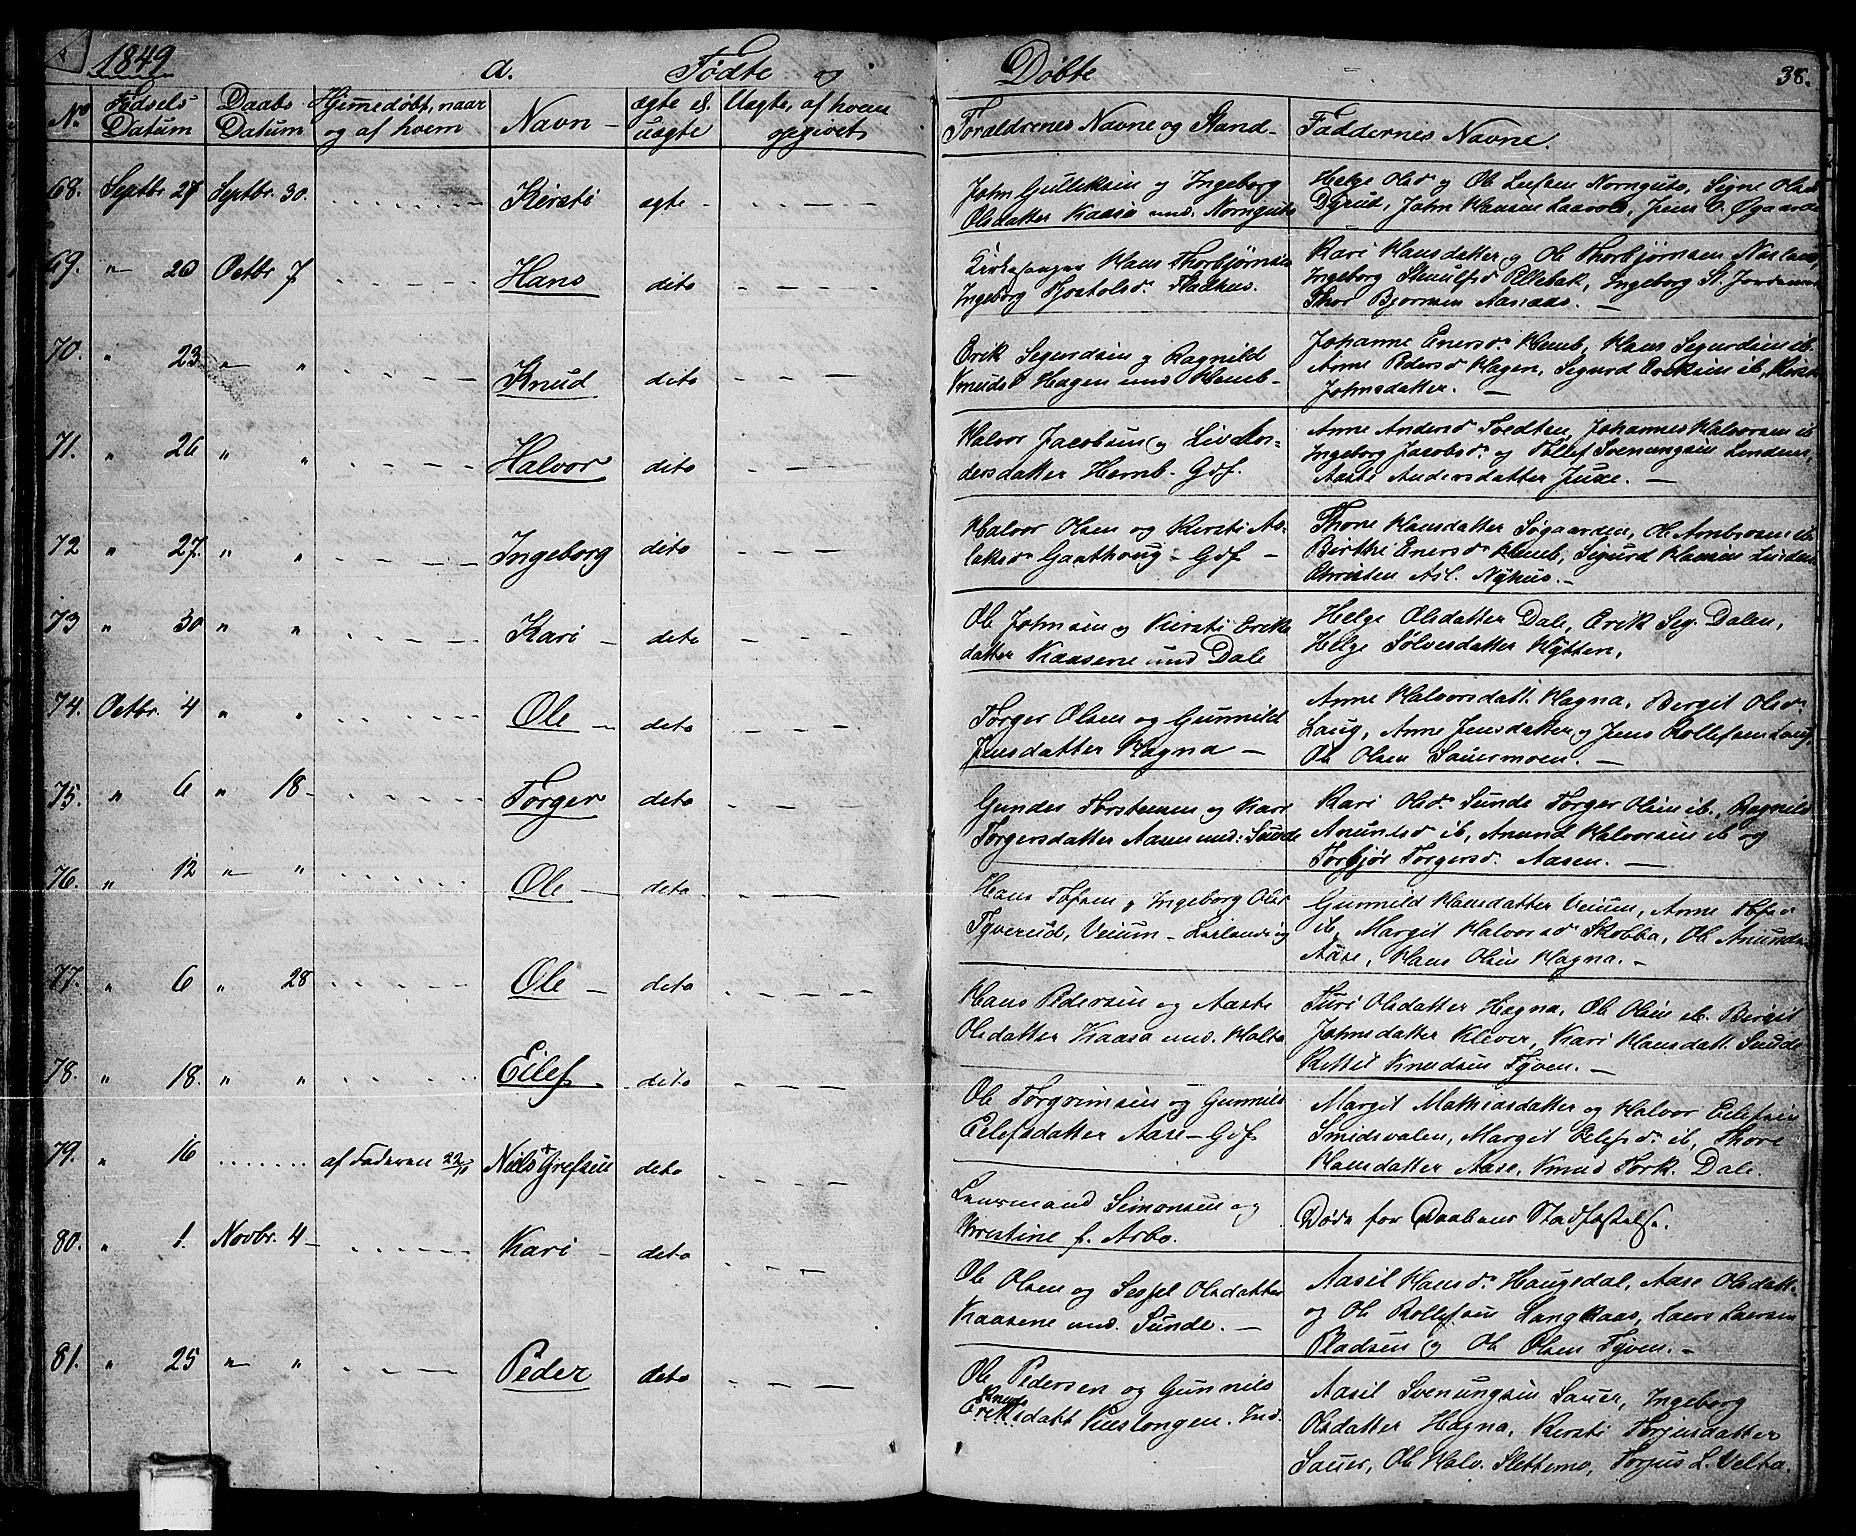 1849
a. Fødte og Døbte
38.
No
Fødsels Datum
Daabs Datum
Hjemedøbt, naar og af hvem
Navn
ægte el. uægte
Uægte, af hvem opgivet
Forældrenes Navne og Stand
Faddernes Navne.
68. Septbr. 27 Septbr. 30. Kirsti egte
John Gulleksen og Ingeborg
Olsdatter Kaasa und. Nornguts
Helge Olsd og Ole Leefsen Nornguts, Signe Olsd
Dyrud, John Hansen Laavold, Jens O. Øgaarde
69. " 20 Octbr. 7 Hans dito
Kirkesanger Hans Thorbjørnsen
Ingeborg Kjostolsd. Aadhus.
Kari Hansdatter og Ole Thorbjørnsen Nasland,
Ingeborg Stenulfsd Ollebak, Ingeborg St.
Thor Bjørnsen Aasaas. —
70. " 23 " " Knud dito
Erik Segurdsen og Ragnild
Knudsd Hagen und Hemb-
Johanne Enersd. Hemb, Hans Segurdsen ib
Anne Pedersd Hagen, Segurd Eriksen ib, Kirsti
Johnsdatter. —
71. " 26 " " Halvor dito
Halvor Jacobsen og Liv An-
dersdatter Hemb- Gdf.
Anne Andersd Tvedten, Johannes Halvorsen ib
Ingeborg Jacobsd. og Tollef Svenungsen Lendens,
Aaste Andersdatter Juxe. —
72 " 27. " " Ingeborg dito
Halvor Olsen og Kersti As-
laksd. Gaathoug - Gdf —
Thone Hansdatter Søgaarden, Ole Ambrosen ib
Birthe Enersd. Hemb, Sigurd Hansen Lindens
Christen Asl. Nyhus. —
73 " 30 " " Kari dito
Ole Johnsen og Kirsti Eriks
datter Kaasene und Dale
Helge Olsdatter Dale, Erik Seg. Dalen,
Helge Sølvesdatter Hytten,
74. Octbr. 4 " " Ole dito
Torger Olsen og Gunnild
Jensdatter Hagna —
Anne Halvorsdatt. Hagna, Bergit Olsd.
Laug, Anne Jensdatter og Jens Rollefsen Laug,
Ole Olsen Sauermoen. —
75. " 6 " 18 Torger dito
Gunder Torstensen og Kari
Torgersdatter Aasen und: Sunde
Kari Olsd. Sunde Torger Olsen ib., Ragnild
Anundsd ib, Anund Halvorsen ib og
Torbjør Torgersd. Aasen. —
76. " 12 " " Ole dito
Hans Tofsen og Ingeborg Olsd
Tyverud, Veium -
Gunnild Hansdatter Veium, Anne
ib, Margit Halvorsd Skobba, Ole
Aase, Hans Olsen Hagna. —
77. " 6 " 28 Ole dito
Hans Pedersen og Aaste
Olsdatter Kaasa und. Holta
Turi Olsdatter Hagna, Ole Olsen ib. Bergit
Johnsdatter Klever, Kari Hansdatt. Sunde
Kittil Knudsen Tyven. —
78. " 18. " " Eilef dito
Ole Torgrimsen og Gunnild
Eilefsdatter Aase - Gdf
Margit Mathiasdatter og Halvor Eilefsen
Smidsvalen, Margit Eilefsd. ib, Thore
Hansdatter Aase, Knud Tork. Dale.
79. " 16 af Faderen 22/10 Niels + Grefsen dito
Lensmand Simonsen og
Kirstine f. Arbo.
Døde før Daabens Stadfæstelse.
80. " 1. Novbr. 4 Kari dito
Ole Olsen og Sessel Olsdatter
Kaasene und. Sunde. —
Aasil Hansd. Haugedal, Aase Olsdatt.
og Ole Rollefsen Langkaas, Laers Laersen
Pladsen og Ole Olsen Tyven. —
81. " 25 " " Peder dito
Ole Pedersen og Gunnild
Knuds
Eriksdatt. Ind.
Aasil Svenungsen Sauer, Ingeborg
Olsdatter Hagna, Kirsti Torjusdatter
Sauer, Ole Halv. Slettemo, Torjus L. Velta.